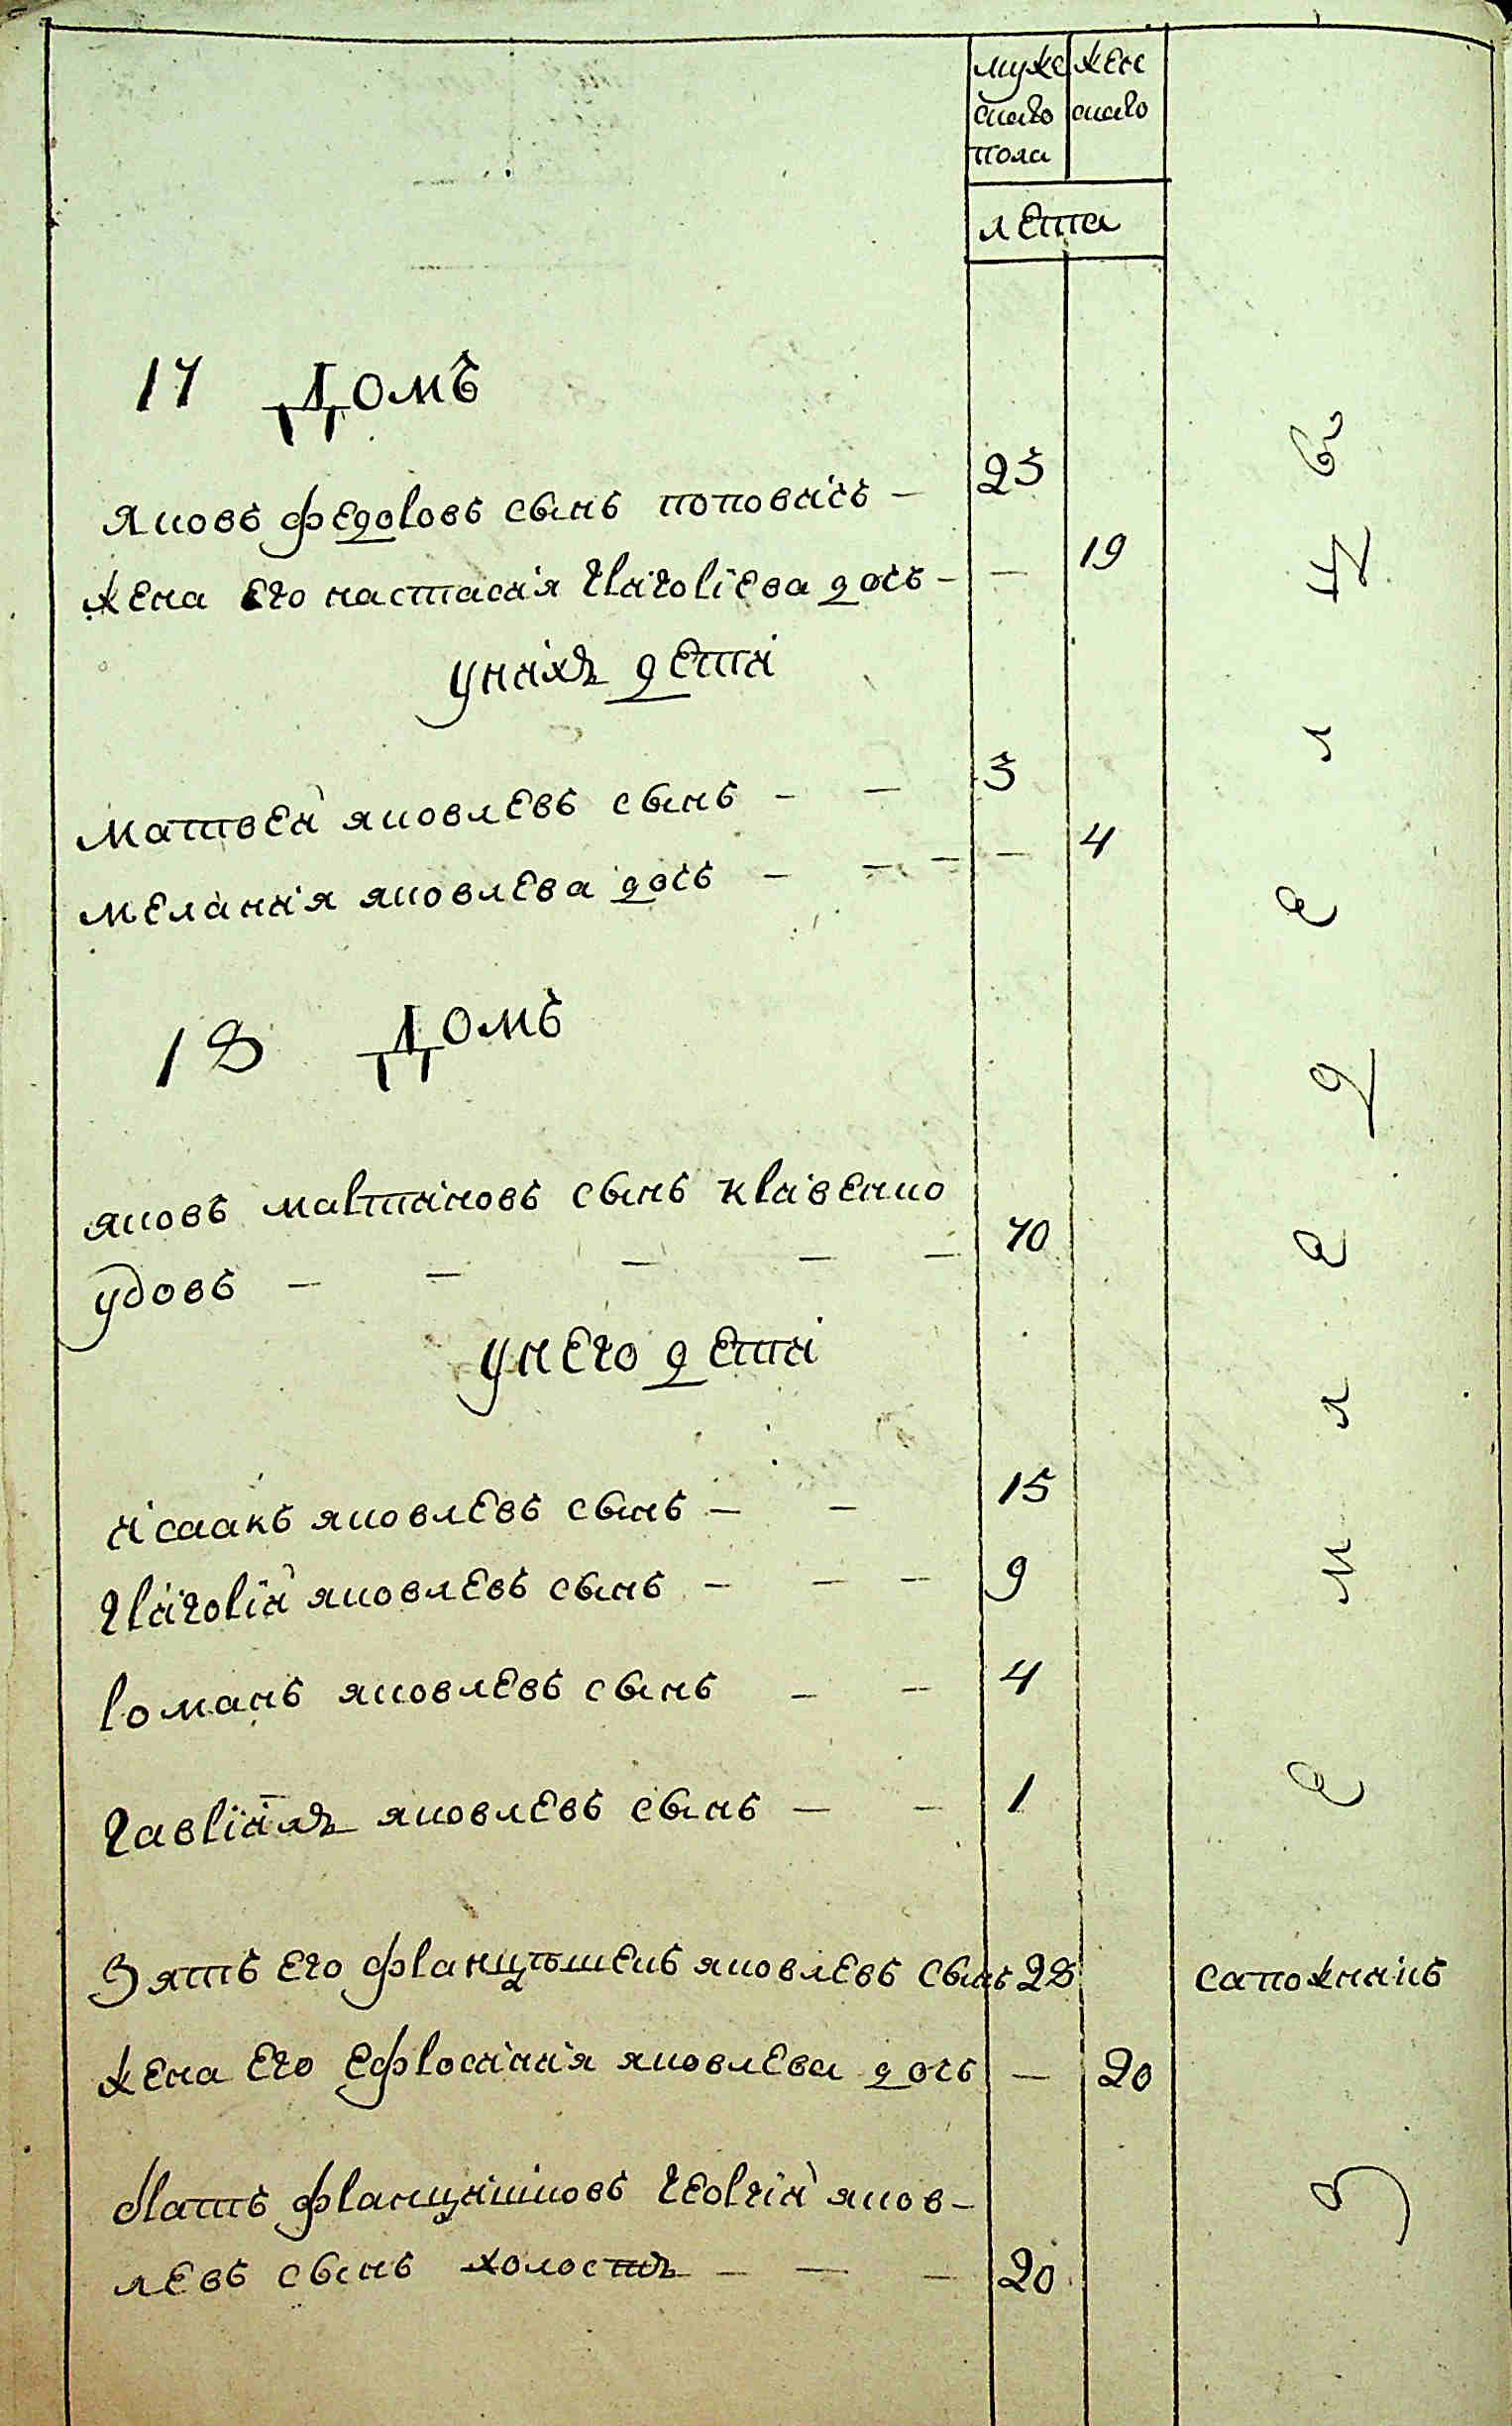 мужс
каго
пола
жен
скаго
лета
17 Домъ
Яковъ Федоровъ сынъ поповичъ - 25
жена его настасия Григориева дочъ - - 19
унихъ дети
матвей яковлевъ сынъ - - 3
мелания яковлева дочъ - - - - 4
18 Домъ
яковъ мартиновъ сынъ кравенко
удовъ - - - - - 70
унего дети
исаакъ яковлевъ сынъ - - 15
Григорий яковлевъ сынъ - - - 9
романъ яковлевъ сынъ - - 4
гавриилъ яковлевъ сынъ - - 1
Зять его францышекъ яковлевъ сынъ 28 сапожникъ
жена его ефросиния яковлева дочъ - 20
братъ францишковъ георгий яков-
левъ сынъ холостъ - - - 20
земледелцы